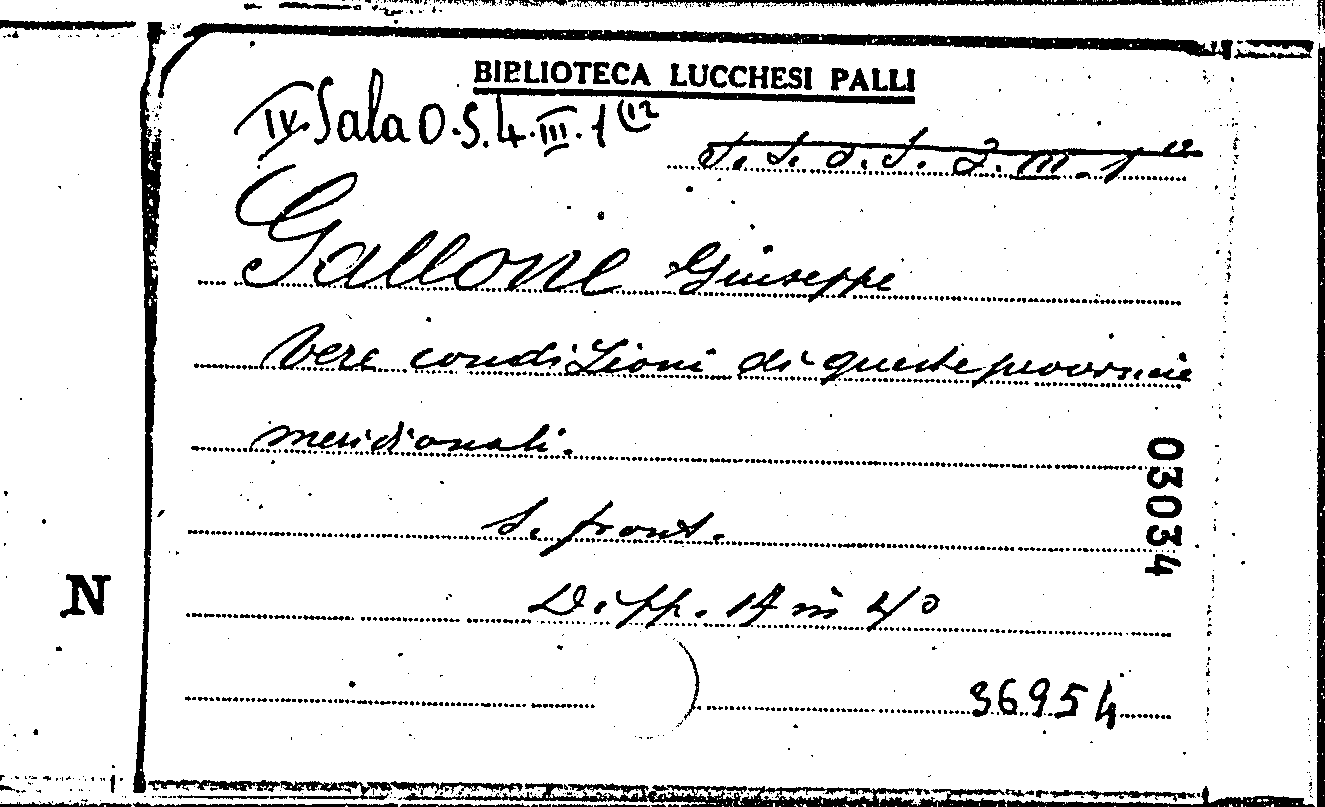 BIBLIOTECA LUCCHESI PALLI
IV Sala O.S.4.III.1(12
Gallone Giuseppe
Vere condizioni di queste provincie
meridionali.
S. front.
Di pp. 17 in 4/o
36954
03034
N